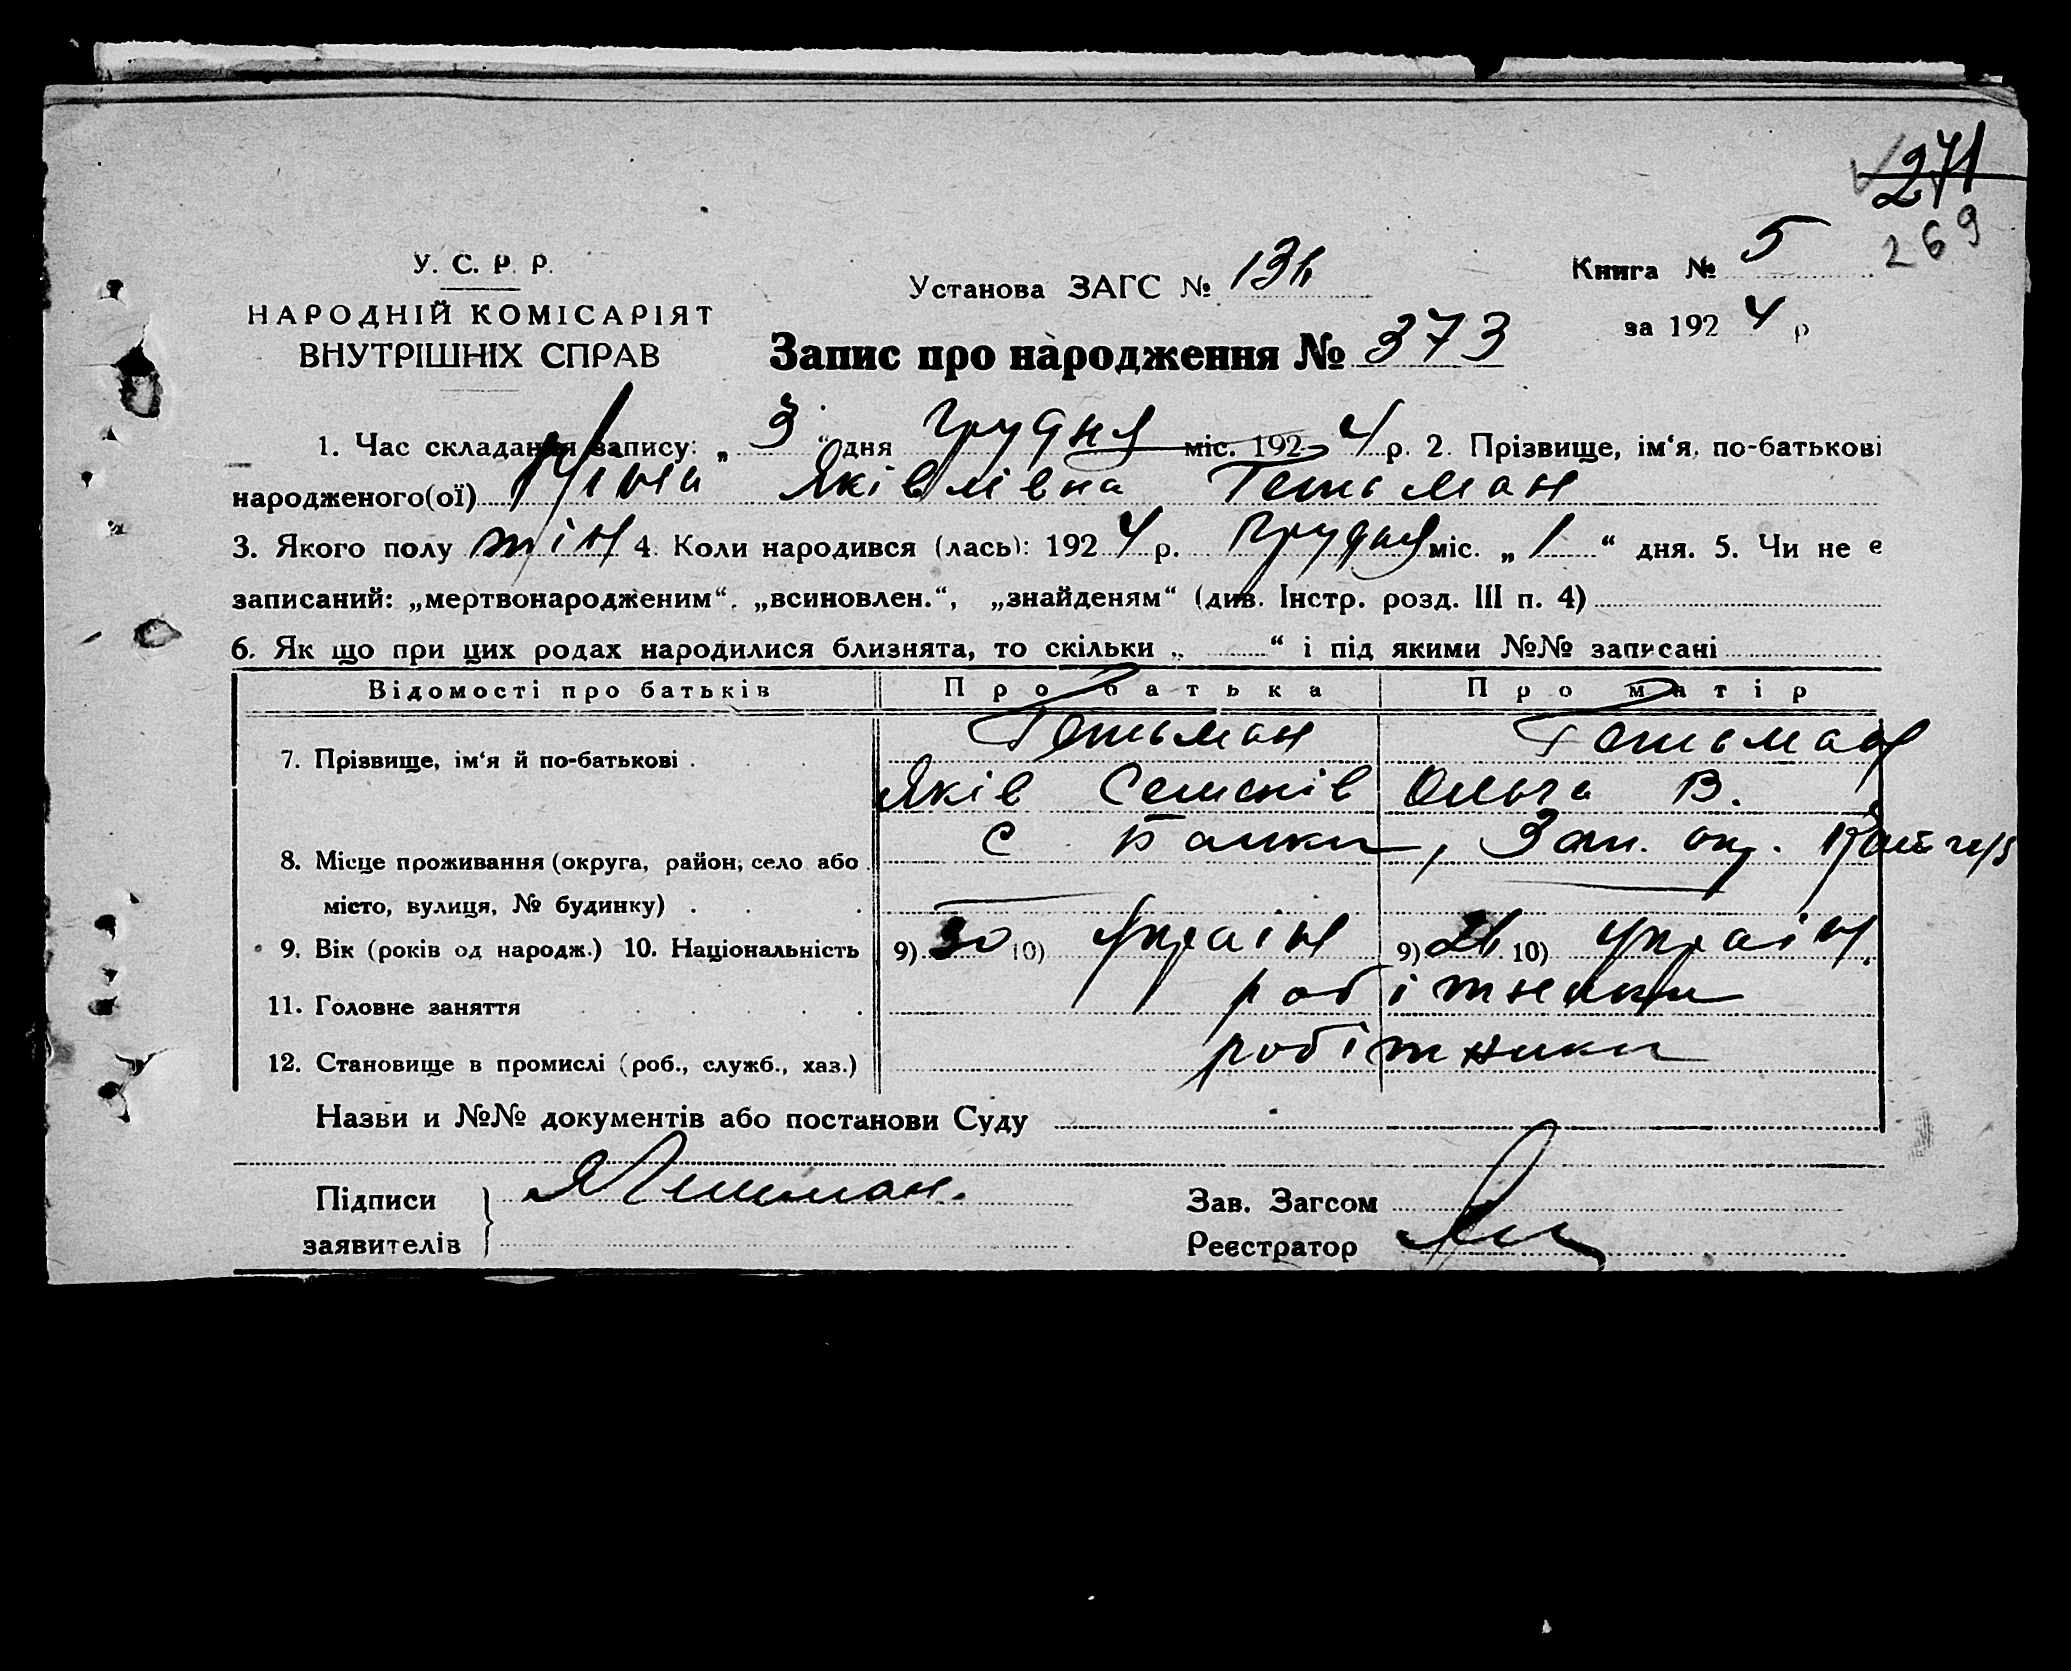 271
269
У. С. Р. Р.
Установа ЗАГС №
Книга № 5
НАРОДНІЙ КОМІСАРІЯТ
за 1924 р
ВНУТРІШНІХ СПРАВ
Запис про народження № 373
1. Час складання запису: „3“ дня грудня міс. 1924 р. 2. Прізвище, ім‘я, по-батькові
народженого(ої) Яківлівна Гетьман
3. Якого полу жін 4. Коли народився (лась): 1924 р. грудня міс. „1“ дня. 5. Чи не є
записаний: „мертвонародженим“, „всиновлен.“, „знайденям“ (див. Інстр. розд. III п. 4)
6. Як що при цих родах народилися близнята, то скільки „ “ і під якими №№ записані
Відомості про батьків Про батька Про матір
7. Прізвище, ім‘я й по-батькові . Гетьман Гетьман
Яків Семенів Ольга В.
8. Місце проживання (округа, район, село або с Балки, Зап. окр.
місто, вулиця, № будинку) .
9. Вік (років од народж.) 10. Національність 9) 30 10) україн 9) 10) україн.
11. Головне заняття робітники
12. Становище в промислі (роб., служб., хаз.) робітники
Назви и №№ документів або постанови Суду
Підписи ЯГетьман. Зав. Загсом
заявителів Реєстратор